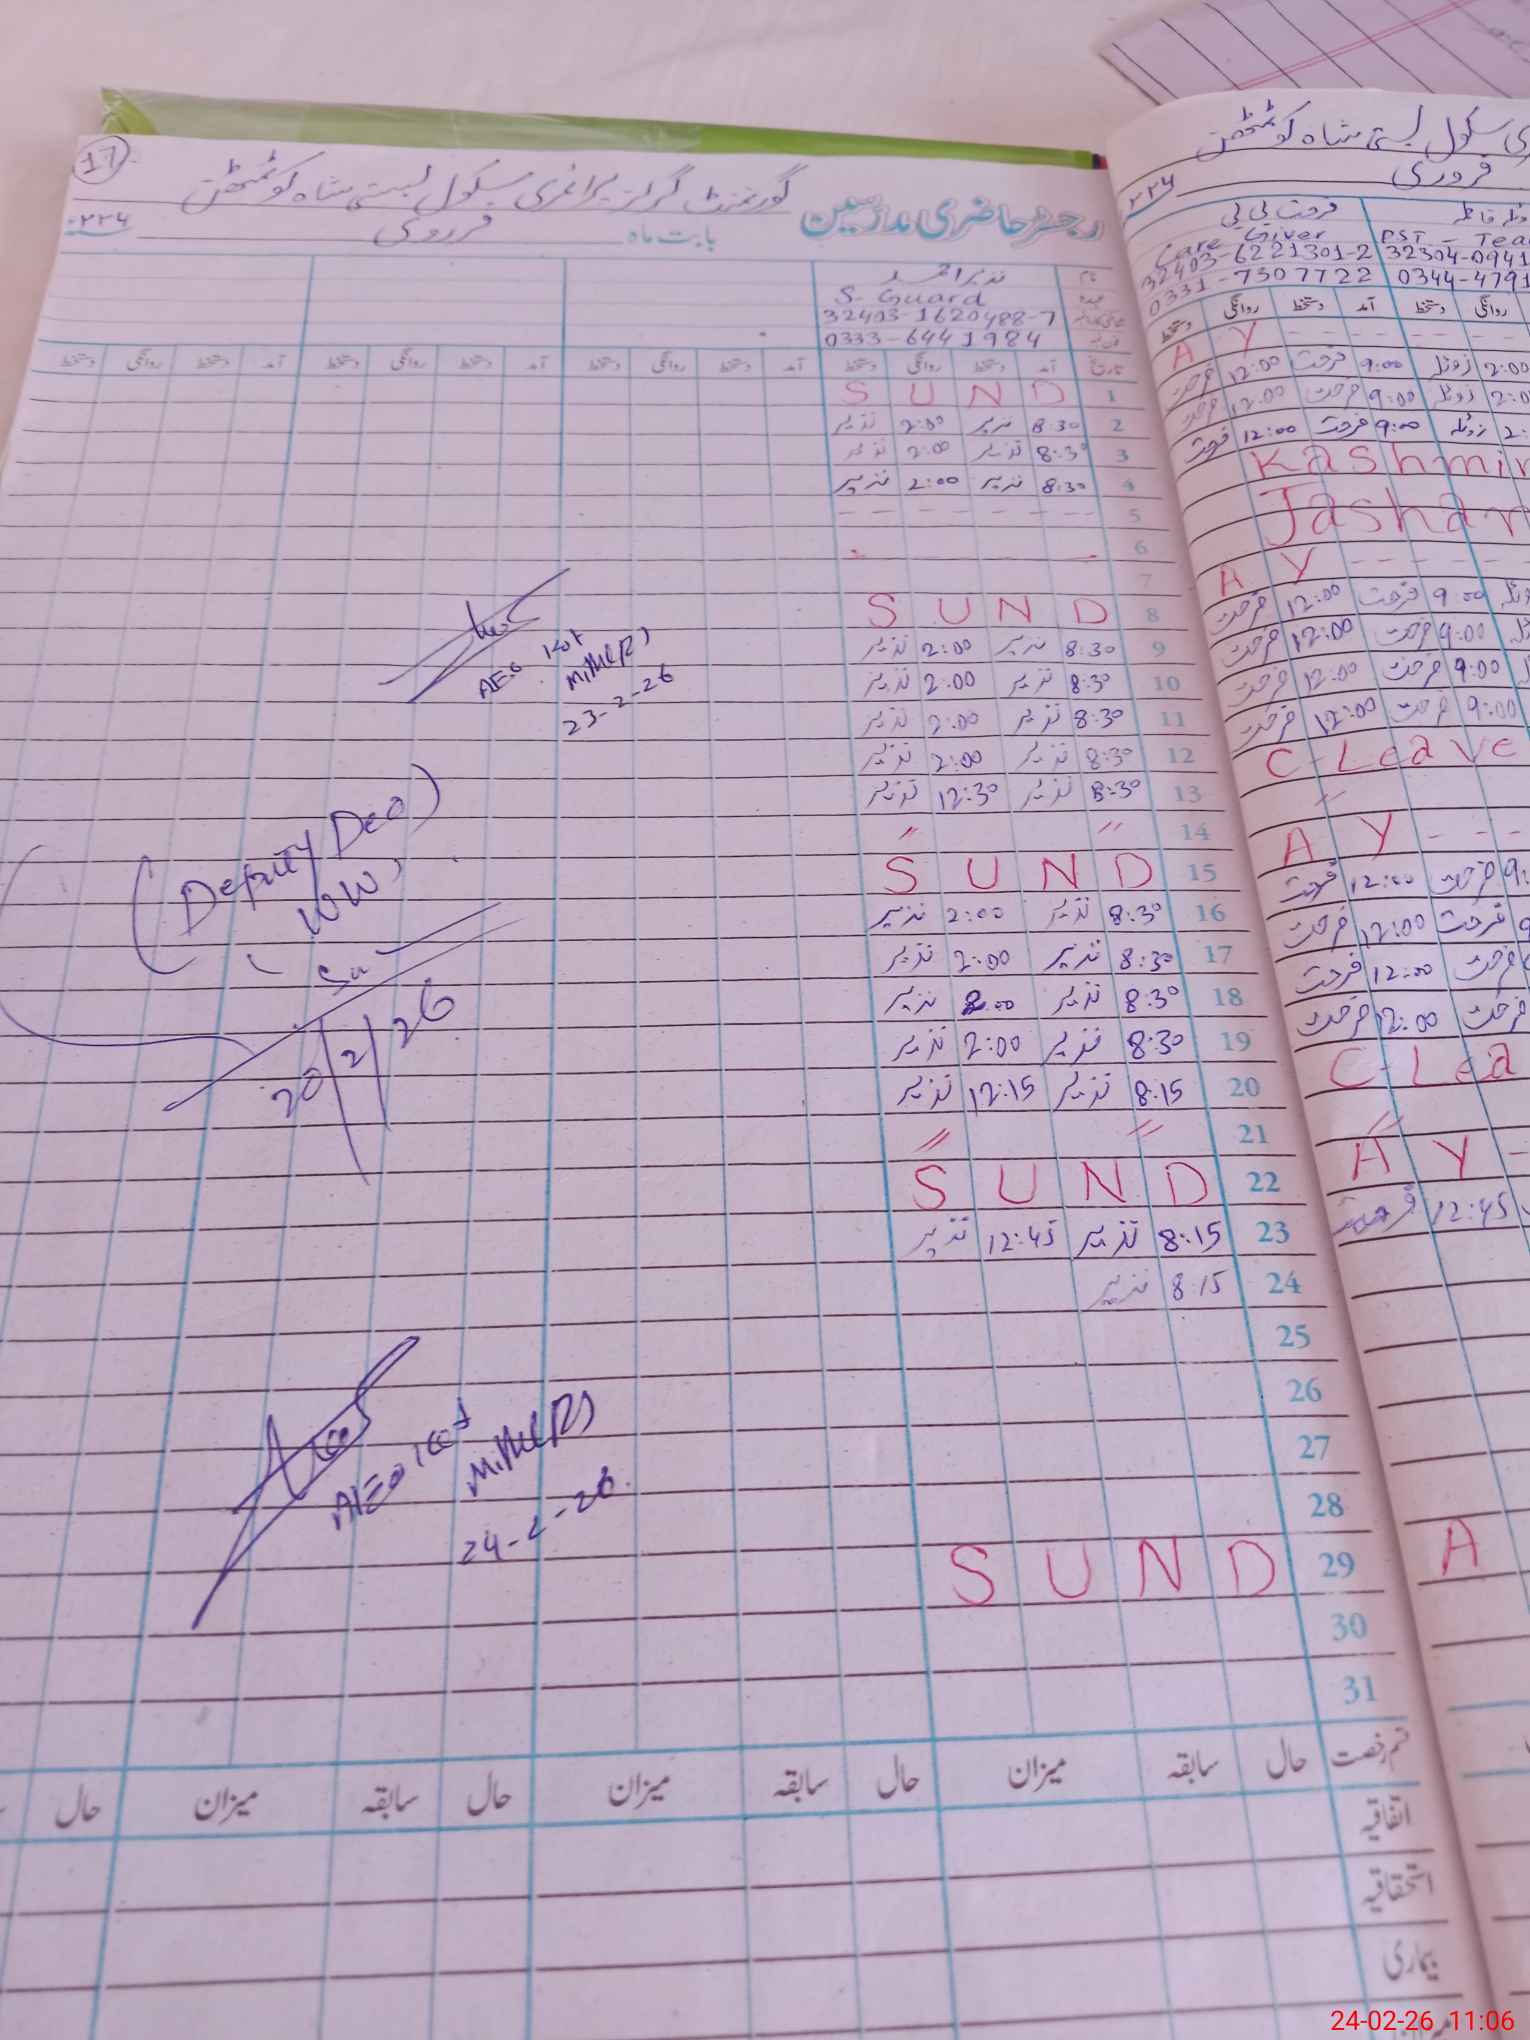 17
رجسٹر حاضری مدرسین گورنمنٹ گرلز پرائمری سکول بستی شاہ کوٹمٹھن
بابت ماہ فروری ۲۲۴
نام نذیر احمد
عہدہ S. Guard
32403-1620488-7
0333-6441984
تاریخ آمد دستخط روانگی دستخط آمد دستخط روانگی دستخط آمد دستخط روانگی دستخط
1 S U N D
2 8:30 نذیر 2:00 نذیر
3 8:30 نذیر 2:00 نذیر
4 8:30 نذیر 2:00 نذیر
5 - - - - - - - -
6
7
8 S U N D
9 8:30 نذیر 2:00 نذیر
10 8:30 نذیر 2:00 نذیر
11 8:30 نذیر 2:00 نذیر
12 8:30 نذیر 2:00 نذیر
13 8:30 نذیر 12:30 نذیر
14 〃 〃
15 S U N D
16 8:30 نذیر 2:00 نذیر
17 8:30 نذیر 2:00 نذیر
18 8:30 نذیر 2:00 نذیر
19 8:30 نذیر 2:00 نذیر
20 8:15 نذیر 12:15 نذیر
21 〃 〃
22 S U N D
23 8:15 نذیر 12:45 نذیر
24 8:15 نذیر
25
26
27
28
29 S U N D
30
31
AEO Kot
23-2-26
(Deputy Deo)
(WW)
20/2/26
AEO Kot
24-2-26
قسم رخصت حال سابقہ میزان حال سابقہ میزان حال سابقہ میزان حال
اتفاقیہ
استحقاقیہ
بیماری
سکول بستی شاہ کوٹمٹھن
فروری
۲۲۴
فرحت بی بی
Care Giver PST - Tea
32403-6221301-2 32304-0941
0331-7307722 0344-4791
دستخط روانگی دستخط آمد دستخط روانگی
A Y - - - - - -
فرحت 12:00 فرحت 9:00 2:00
فرحت 12:00 فرحت 9:00
فرحت 12:00 فرحت 9:00
Kashmir
Jashan
A Y - - - - -
فرحت 12:00 فرحت 9:00
فرحت 12:00 فرحت 9:00
فرحت 12:00 فرحت 9:00
فرحت 12:00 فرحت 9:00
C-Leave
〃
A Y - - -
فرحت 12:00 فرحت
فرحت 12:00 فرحت
فرحت 12:00 فرحت
فرحت 12:00 فرحت
C-Lea
〃
A Y -
فرحت 12:45
A
24-02-26 11:06